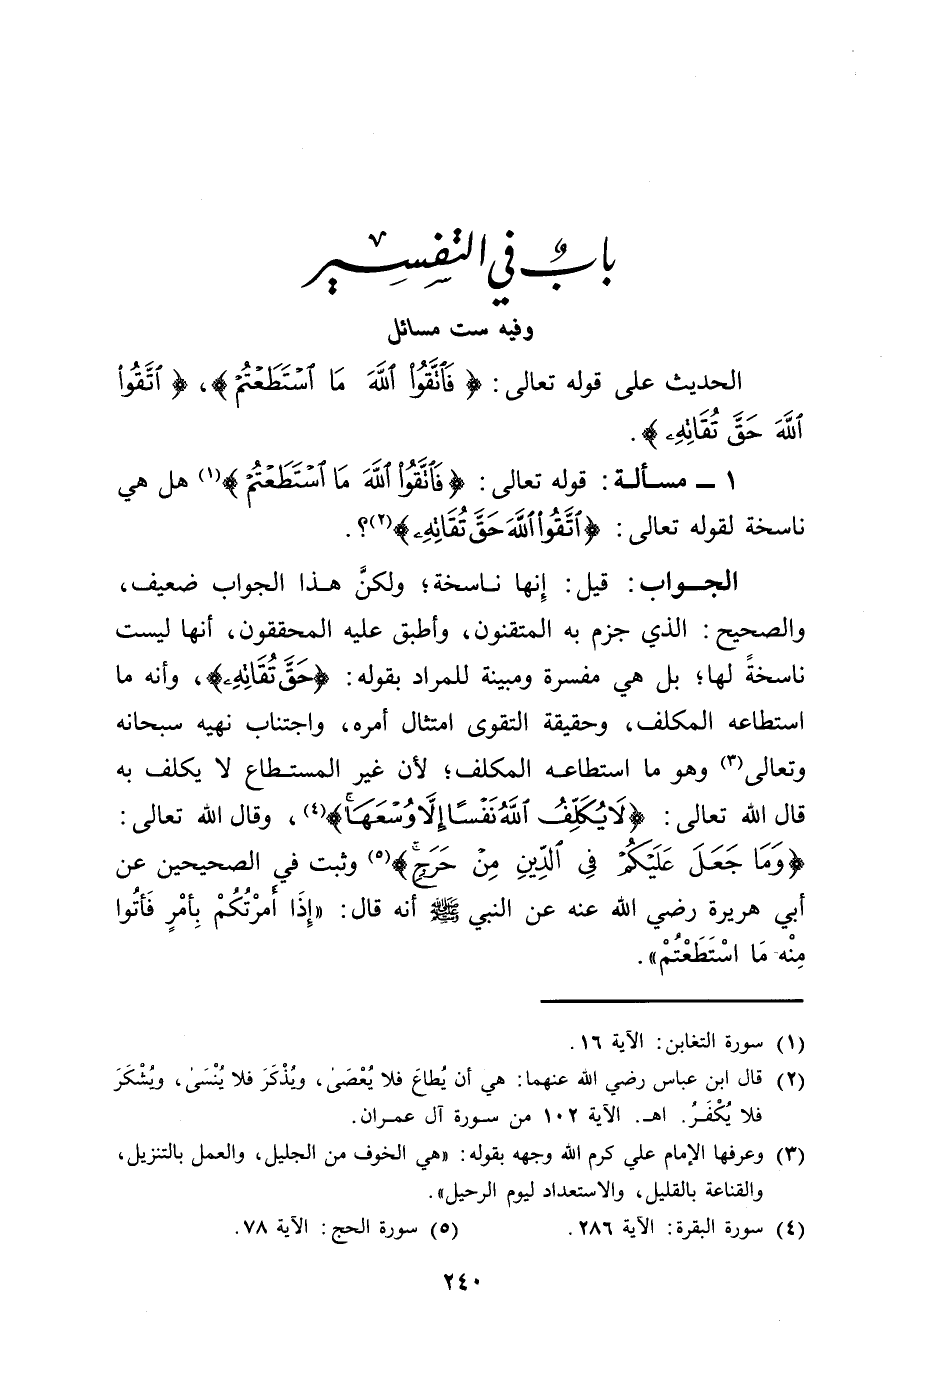 بابٌ في التفسير
وفيه ست مسائل
الحديث على قوله تعالى: ﴿ فَٱتَّقُوا۟ ٱللَّهَ مَا ٱسْتَطَعْتُمْ ﴾، ﴿ ٱتَّقُوا۟
ٱللَّهَ حَقَّ تُقَاتِهِۦ ﴾.
١ ــ مسألة: قوله تعالى: ﴿ فَٱتَّقُوا۟ ٱللَّهَ مَا ٱسْتَطَعْتُمْ ﴾(١) هل هي
ناسخة لقوله تعالى: ﴿ ٱتَّقُوا۟ ٱللَّهَ حَقَّ تُقَاتِهِۦ ﴾(٢)؟.
الجواب: قيل: إنها ناسخة؛ ولكنَّ هذا الجواب ضعيف،
والصحيح: الذي جزم به المتقنون، وأطبق عليه المحققون، أنها ليست
ناسخةً لها؛ بل هي مفسرة ومبينة للمراد بقوله: ﴿حَقَّ تُقَاتِهِۦ﴾، وأنه ما
استطاعه المكلف، وحقيقة التقوى امتثال أمره، واجتناب نهيه سبحانه
وتعالى(٣) وهو ما استطاعه المكلف؛ لأن غير المستطاع لا يكلف به
قال الله تعالى: ﴿لَا يُكَلِّفُ ٱللَّهُ نَفْسًا إِلَّا وُسْعَهَاۚ﴾(٤)، وقال الله تعالى:
﴿ وَمَا جَعَلَ عَلَيْكُمْ فِي ٱلدِّينِ مِنْ حَرَجٍۚ ﴾(٥) وثبت في الصحيحين عن
أبي هريرة رضي الله عنه عن النبي ﷺ أنه قال: «إِذَا أَمرْتُكُمْ بِأمْرٍ فَأتُوا
مِنْه مَا اسْتَطَعْتُمْ».
(١) سورة التغابن: الآية ١٦.
(٢) قال ابن عباس رضي الله عنهما: هي أن يُطاعَ فلا يُعْصَىٰ، ويُذْكَرَ فلا يُنْسَىٰ، ويُشْكَرَ
فلا يُكْفَـرُ. اهـ. الآية ١٠٢ من سورة آل عمران.
(٣) وعرفها الإمام علي كرم الله وجهه بقوله: «هي الخوف من الجليل، والعمل بالتنزيل،
والقناعة بالقليل، والاستعداد ليوم الرحيل».
(٤) سورة البقرة: الآية ٢٨٦. (٥) سورة الحج: الآية ٧٨.
٢٤٠